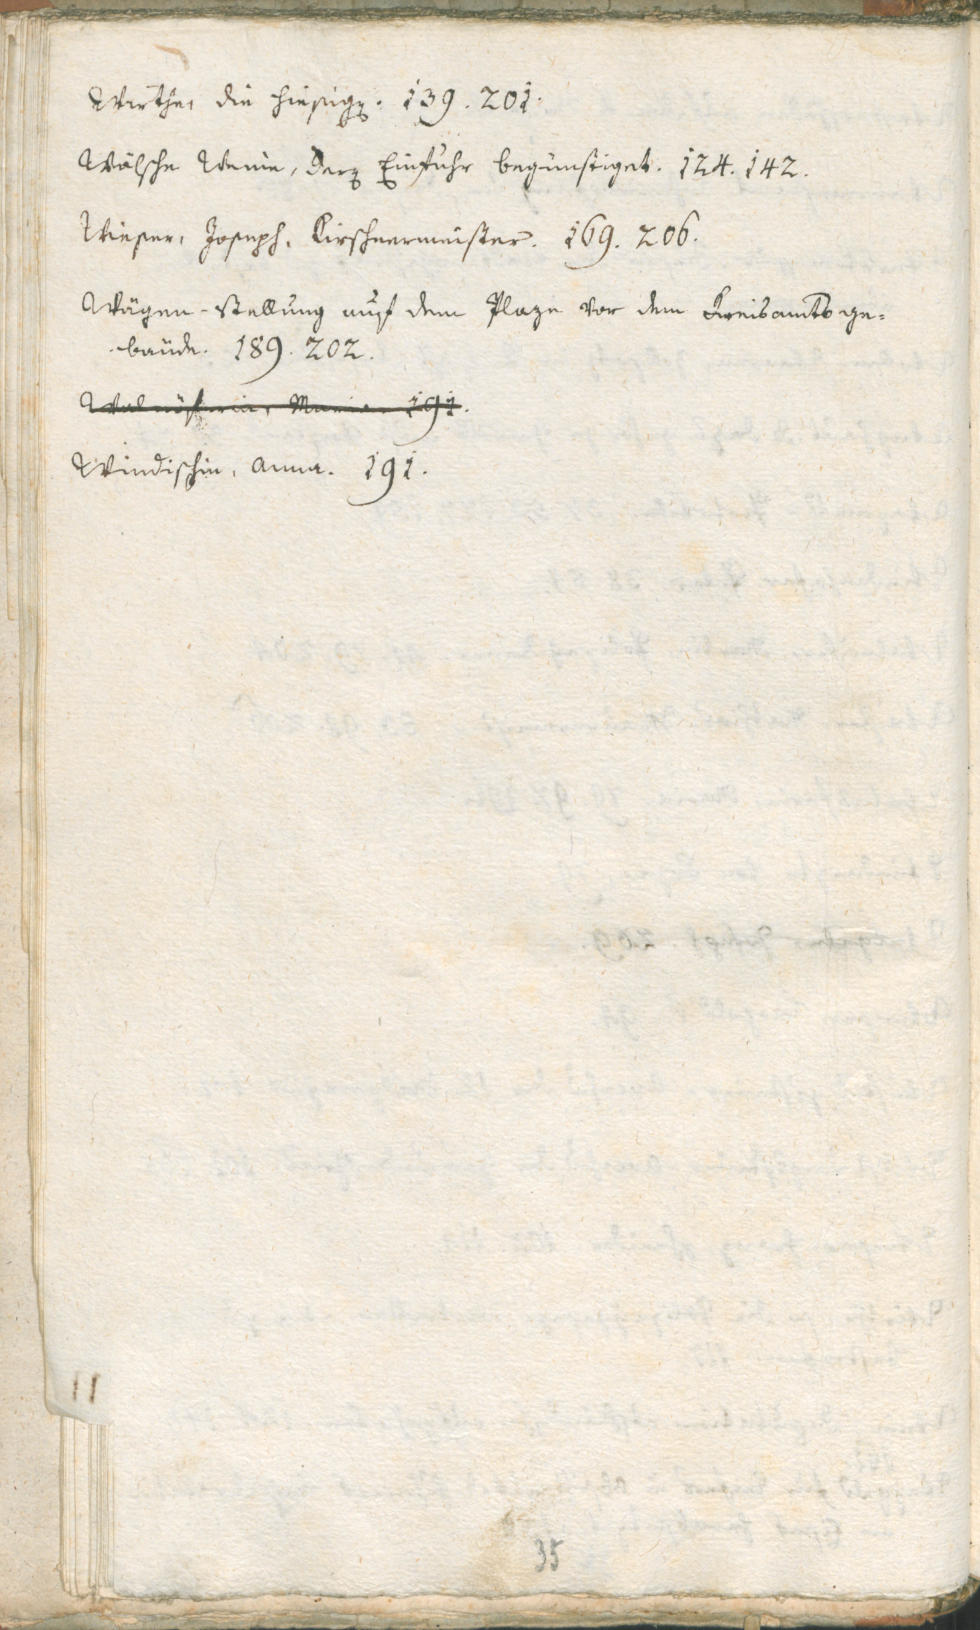 Wirthe, die hiesigen. 139. 201.
Wälsche Weine, deren Einfuhr begünstiget. 124. 142.
Wieser, Joseph, Kirschnermeister. 169. 206.
Wägen-Stellung auf dem Plaze vor dem Kreisamtsge-
bäude. 189. 202.
Maria. 191.
Windischin, Anna. 191.
11
35